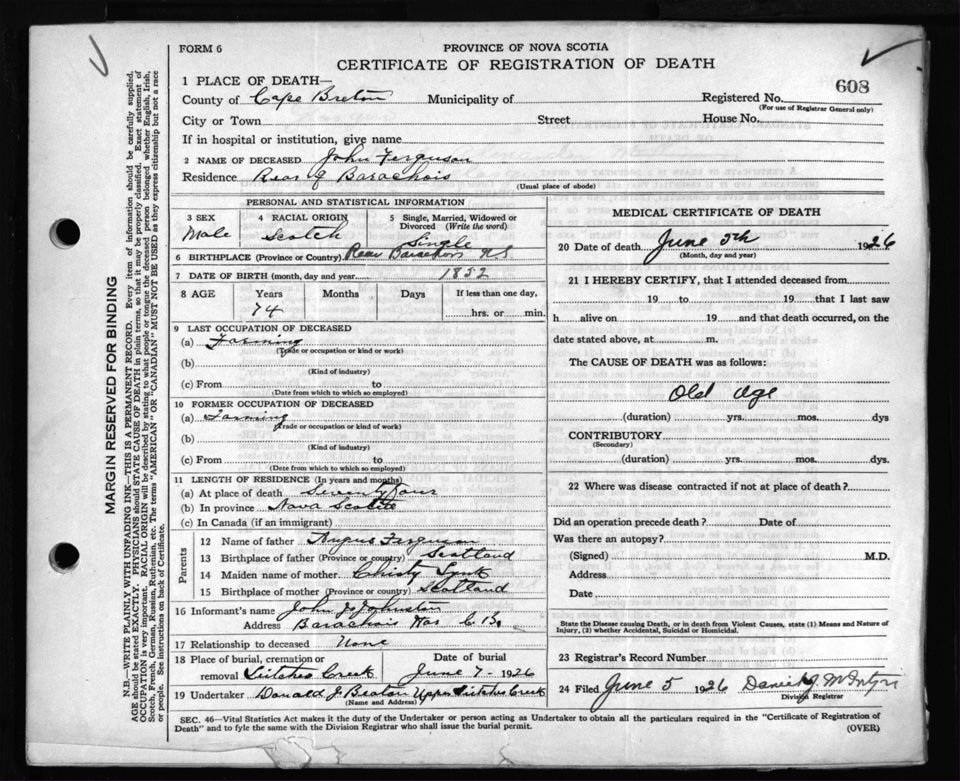 FORM 6
PROVINCE OF NOVA SCOTIA
CERTIFICATE OF REGISTRATION OF DEATH
608
1 PLACE OF DEATH—
County of Cape Breton Municipality of Registered No.
(For use of Registrar General only)
City or Town Street House No.
If in hospital or institution, give name
2 NAME OF DECEASED John Ferguson
Residence Rear of Barachois
(Usual place of abode)
PERSONAL AND STATISTICAL INFORMATION
3 SEX 4 RACIAL ORIGIN 5 Single, Married, Widowed or Divorced (Write the word)
Male Scotch Single
6 BIRTHPLACE (Province or Country) Rear Barachois N S
7 DATE OF BIRTH (month, day and year) 1852
8 AGE Years Months Days If less than one day,
74 hrs. or min.
9 LAST OCCUPATION OF DECEASED
(a) Farming
(Trade or occupation or kind or work)
(b)
(Kind of industry)
(c) From to
(Date from which to which so employed)
10 FORMER OCCUPATION OF DECEASED
(a) Farming
(Trade or occupation or kind of work)
(b)
(Kind of industry)
(c) From to
(Date from which to which so employed)
11 LENGTH OF RESIDENCE (In years and months)
(a) At place of death Seventy four
(b) In province Nova Scotia
(c) In Canada (if an immigrant)
Parents
12 Name of father Angus Ferguson
13 Birthplace of father (Province or country) Scotland
14 Maiden name of mother Christy
15 Birthplace of mother (Province or country) Scotland
16 Informant's name John J Johnston
Address Barachois Har C B.
17 Relationship to deceased None
18 Place of burial, cremation or removal Leitches Creek
Date of burial June 7 - 1926
19 Undertaker Donald J. Beaton Upper Leitches Creek
(Name and Address)
MEDICAL CERTIFICATE OF DEATH
20 Date of death June 5th 1926
(Month, day and year)
21 I HEREBY CERTIFY, that I attended deceased from
19 to 19 that I last saw
h alive on 19 and that death occurred, on the
date stated above, at m.
The CAUSE OF DEATH was as follows:
Old Age
(duration) yrs. mos. dys
CONTRIBUTORY
(Secondary)
(duration) yrs. mos. dys.
22 Where was disease contracted if not at place of death?
Did an operation precede death? Date of
Was there an autopsy?
(Signed) M.D.
Address
Date
State the Disease causing Death, or in death from Violent Causes, state (1) Means and Nature of
Injury, (2) whether Accidental, Suicidal or Homicidal.
23 Registrar's Record Number
24 Filed June 5 1926 Daniel J McIntyre
Division Registrar
SEC. 46—Vital Statistics Act makes it the duty of the Undertaker or person acting as Undertaker to obtain all the particulars required in the "Certificate of Registration of
Death" and to fyle the same with the Division Registrar who shall issue the burial permit.
(OVER)
MARGIN RESERVED FOR BINDING
N.B.—WRITE PLAINLY WITH UNFADING INK—THIS IS A PERMANENT RECORD. Every item of information should be carefully supplied.
AGE should be stated EXACTLY. PHYSICIANS should STATE CAUSE OF DEATH in plain terms, so that it may be properly classified. Exact statement of
OCCUPATION is very important. RACIAL ORIGIN will be described by stating to what people or tongue the deceased person belonged, whether English, Irish,
Scotch, French, German, Russian, Ruthenian, etc. The terms "AMERICAN" OR "CANADIAN" MUST NOT BE USED as they express citizenship but not a race
or people. See instructions on back of Certificate.